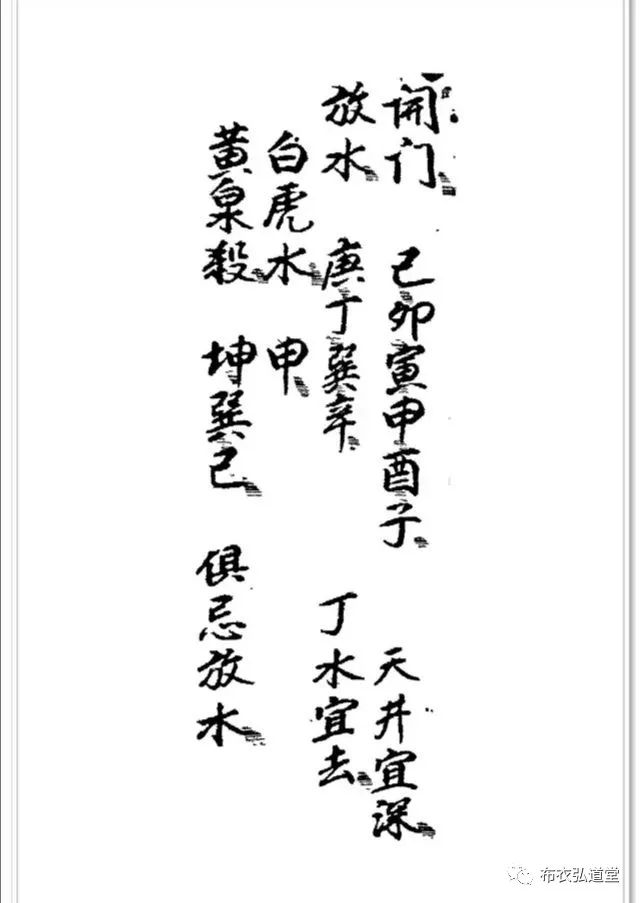 開门 已卯寅甲酉子 天井宜深
放水 庚丁巽辛 丁水宜去
白虎水 申
黄泉殺 坤巽已 俱忌放水
布衣弘道堂